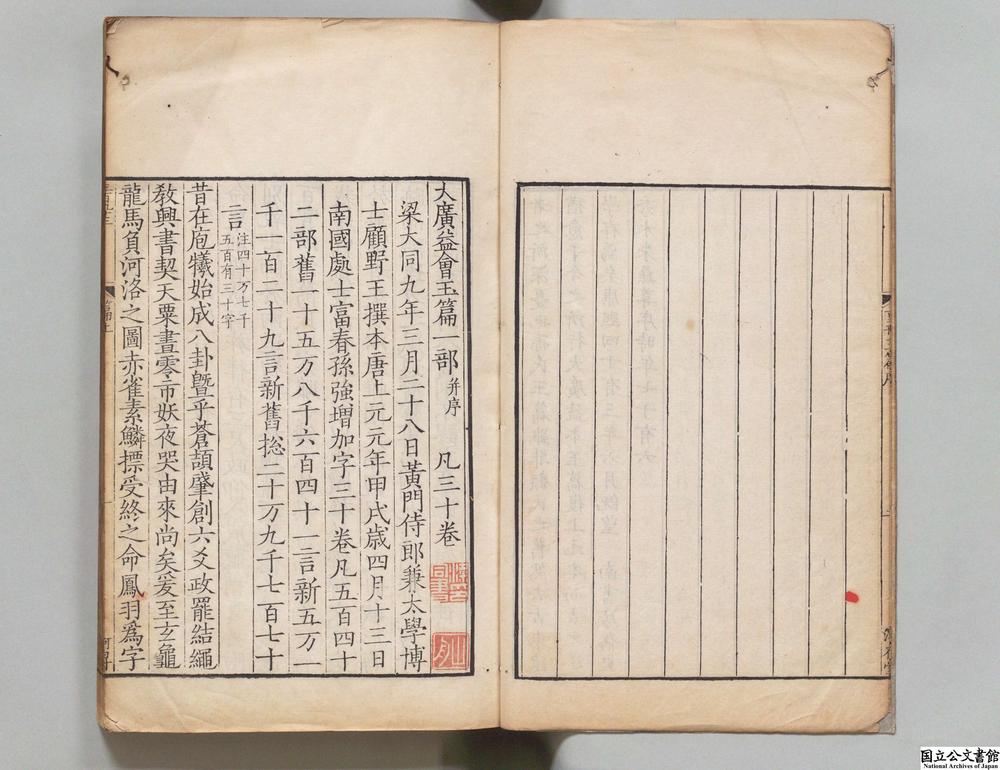 大廣益會玉篇一部 并序 凡三十卷
梁大同九年三月二十八日黃門侍郎兼太學博
士顧野王撰本唐上元元年甲戌歲四月十三日
南國處士富春孫強增加字三十卷凡五百四十
二部舊一十五万八千六百四十一言新五万一
千一百二十九言新舊捴二十万九千七百七十
言 注四十万七千
五百有三十字
昔在庖犧始成八卦曁乎蒼頡肇創六爻政罷結繩
敎興書契天粟晝零市妖夜哭由來尚矣爰至玄龜
龍馬負河洛之圖赤雀素鱗摽受終之命鳳羽爲字
国立公文書館
National Archives of Japan